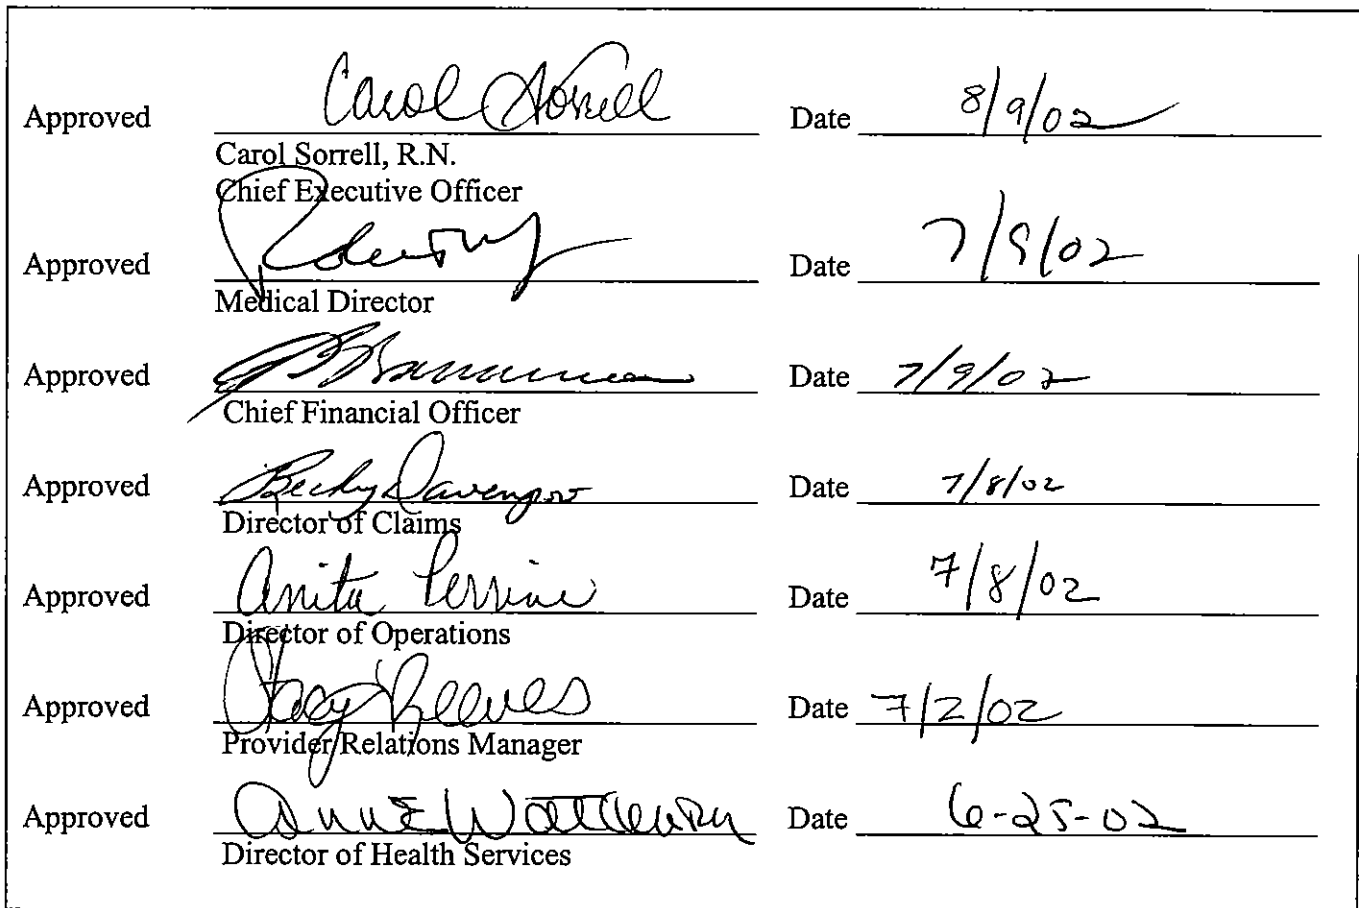 Approved Carol Sorrell Date 8/9/02
Carol Sorrell, R.N.
Chief Executive Officer
Approved Date 7/9/02
Medical Director
Approved Date 7/9/02
Chief Financial Officer
Approved Becky Davenport Date 7/8/02
Director of Claims
Approved Anita Perrine Date 7/8/02
Director of Operations
Approved Stacy Reeves Date 7/2/02
Provider Relations Manager
Approved Anne Date 6-25-02
Director of Health Services